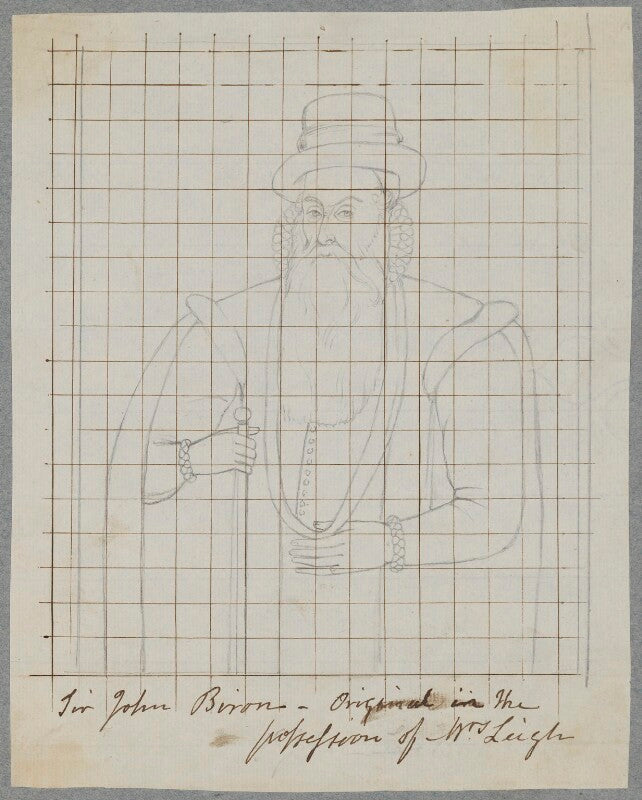 Sir John Biron - Original in the
possession of Mrs Leigh